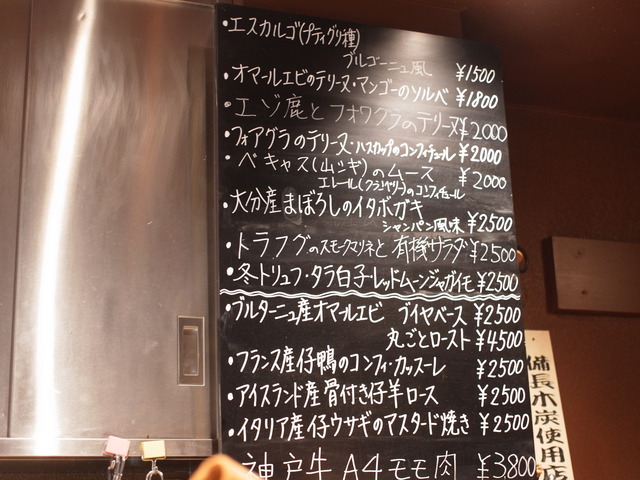 ・エスカルゴ(プティグリ種)
ブルゴーニュ風 ¥1500
・オマールエビのテリーヌ・マンゴーのソルベ ¥1800
・エゾ鹿とフォワグラのテリーヌ ¥2000
・フォアグラのテリーヌ・ハスカップのコンフィチュール ¥2000
・ベキャス(山シギ)のムース ¥2000
エレール(クランベリー)のコンフィチュール
・大分産まぼろしのイタボガキ
シャンパン風味 ¥2500
・トラフグのスモークマリネと有機サラダ ¥2500
・冬トリュフ・タラ白子・レッドムーンジャガイモ ¥2500
・ブルターニュ産オマールエビ ブイヤベース ¥2500
丸ごとロースト ¥4500
・フランス産仔鴨のコンフィ・カッスーレ ¥2500
・アイスランド産骨付き仔羊ロース ¥2500
・イタリア産仔ウサギのマスタード焼き ¥2500
神戸牛 A4モモ肉 ¥3800
備長木炭使用店